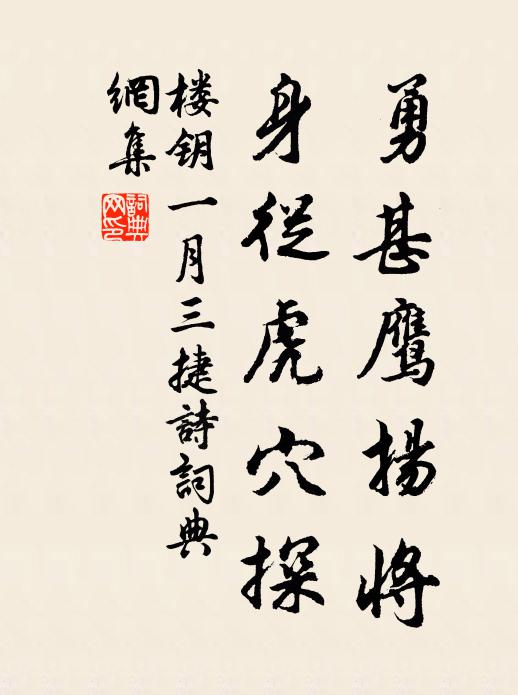 勇甚鷹揚將
身從虎穴探
楼钥一月三捷詩詞典
網集
詞典
网印